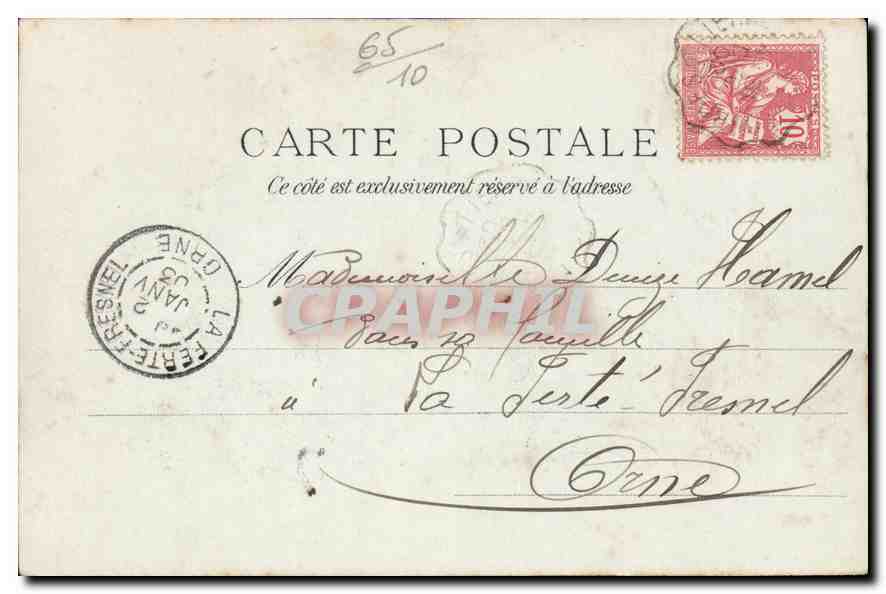 65/10
CARTE POSTALE
Ce côté est exclusivement réservé à l'adresse
10
LA FERTÉ-FRESNEL ORNE
2
JANV
03
Mademoiselle Denize Hamel
CPAPHIL
dans sa famille
à La Ferté-Fresnel
Orne